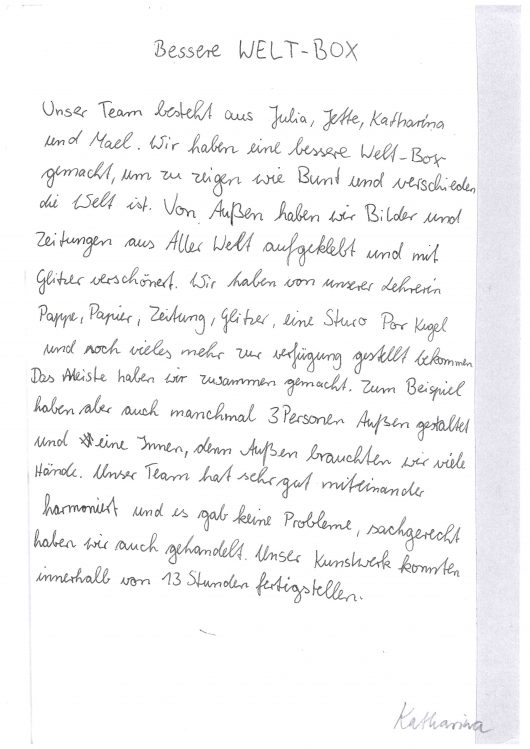 Bessere WELT-BOX
Unser Team besteht aus Julia, Jette, Katharina
und Mael. Wir haben eine bessere Welt-Box
gemacht, um zu zeigen wie Bunt und verschieden
die Welt ist. Von Außen haben wir Bilder und
Zeitungen aus Aller Welt aufgeklebt und mit
Glitzer verschönert. Wir haben von unserer Lehrerin
Pappe, Papier, Zeitung, Glitzer, eine Sturo Por Kugel
und noch vieles mehr zur verfügung gestellt bekommen.
Das Meiste haben wir zusammen gemacht. Zum Beispiel
haben aber auch manchmal 3 Personen Außen gestaltet
und eine Innen, denn Außen brauchten wir viele
Hände. Unser Team hat sehr gut miteinander
harmoniert und es gab keine Probleme, sachgerecht
haben wir auch gehandelt. Unser Kunstwerk konnten
innerhalb von 13 Stunden fertigstellen.
Katharina